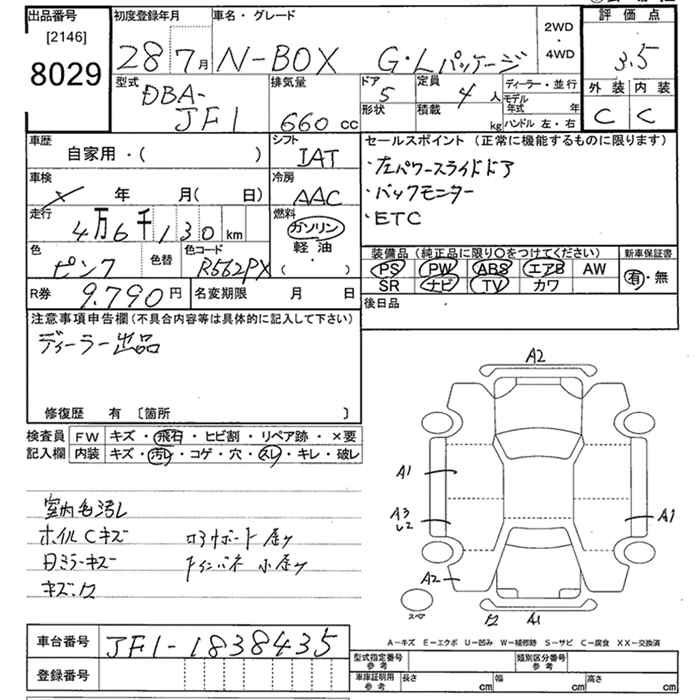 出品番号
[2146]
8029
初度登録年月
28 7月
車名・グレード
N-BOX G・Lパッケージ
2WD
・
4WD
評価点
3.5
外装 内装
C C
型式
DBA-
JF1
排気量
660 cc
ドア
5
定員
4人
形状
積載
kg
ディーラー・並行
モデル年式 年
ハンドル 左・右
車歴
自家用・( )
シフト
IAT
車検
年 月( 日)
冷房
AAC
走行
4万6千130 km
燃料
ガソリン
軽油
・( )
色
ピンク
色替
色コード
R562PX
R券 9.790円
名変期限 月 日
セールスポイント(正常に機能するものに限ります)
・左パワースライドドア
・バックモニター
・ETC
装備品(純正品に限り○をつけてください)
PS PW ABS エアB AW
SR ナビ TV カワ
新車保証書
有・無
後日品
注意事項申告欄(不具合内容等は具体的に記入して下さい)
ディーラー出品
修復歴 有 〔箇所 〕
検査員記入欄
FW キズ・飛石・ヒビ割・リペア跡・×要
内装 キズ・汚レ・コゲ・穴・スレ・キレ・破レ
室内毛汚レ
ホイルCキズ
日ミラーキズ
A2
A1
A3
U2
A1
A2
スペア
A1
A-キズ E-エクボ U-凹み W-補修跡 S-サビ C-腐食 XX-交換済
車台番号 JF1-1838435
登録番号
型式指定番号
参考
類別区分番号
参考
車庫証明用
参考
長さ cm 幅 cm 高さ cm